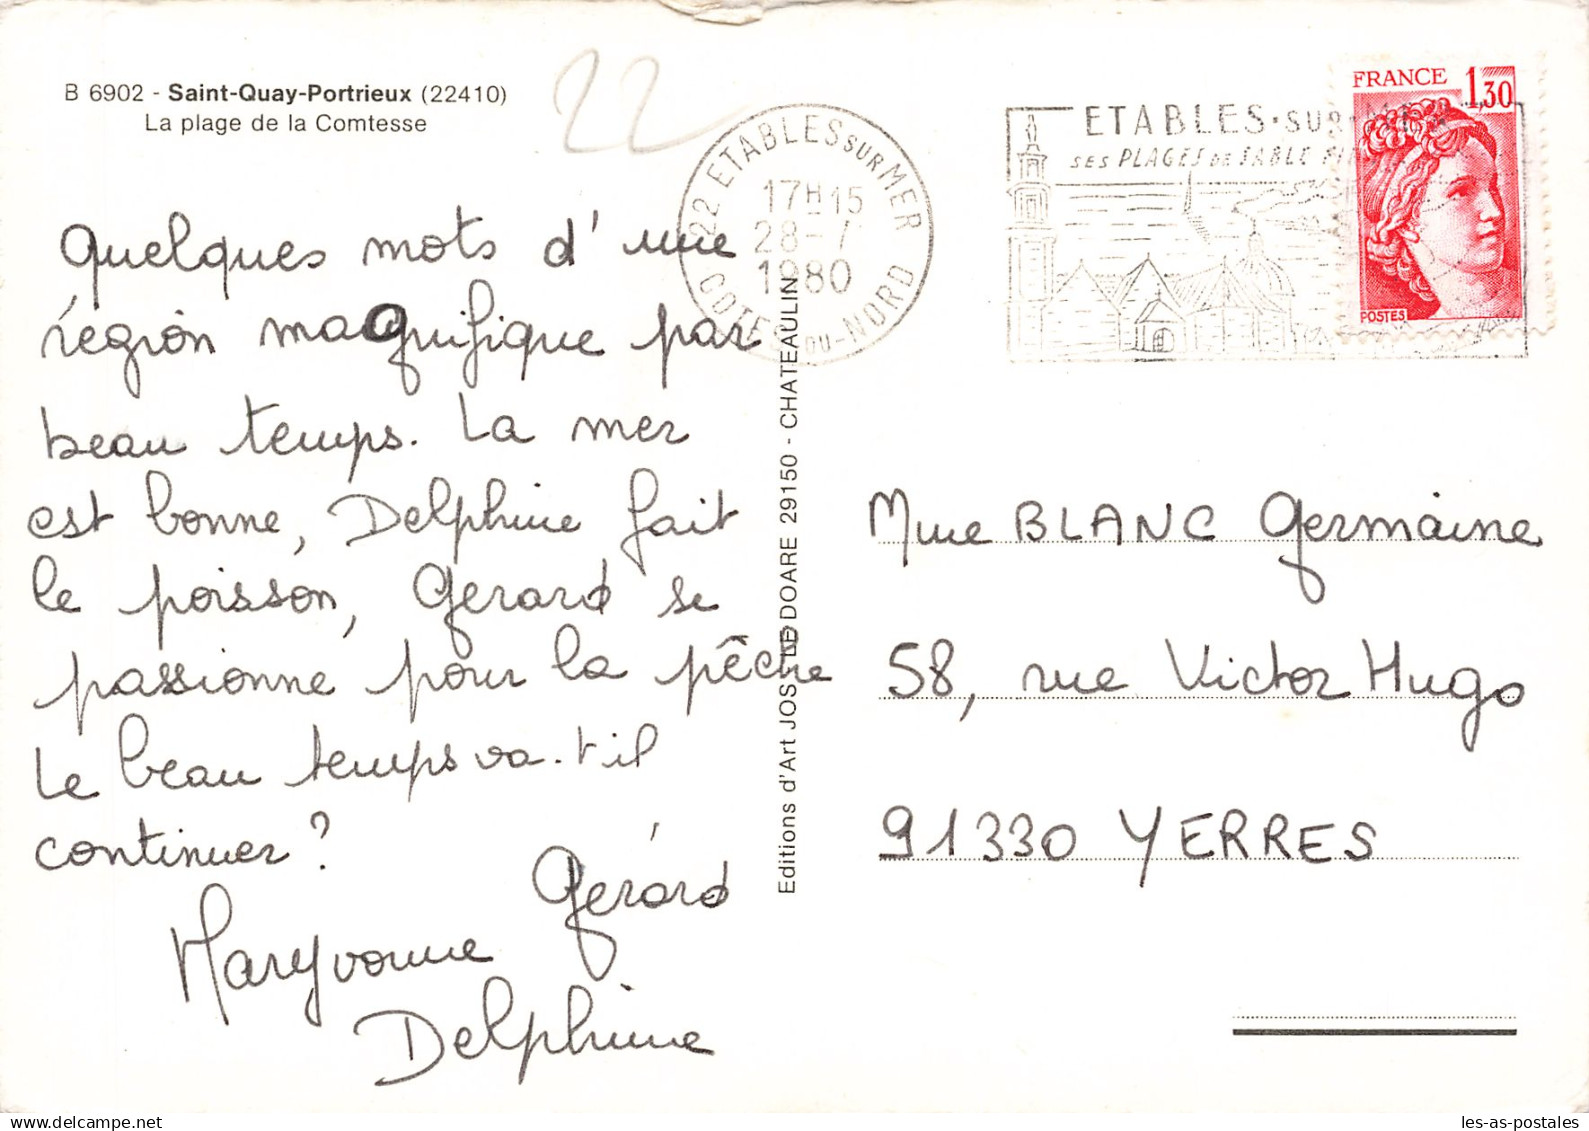 B 6902 - Saint-Quay-Portrieux (22410)
La plage de la Comtesse
22
Quelques mots d'une
région magnifique par
beau temps. La mer
est bonne, Delphine fait
le poisson, Gérard se
passionne pour la pêche
Le beau temps va-t'il
continuer?
Gérard
Maryvonne
Delphine
Editions d'Art JOS LE DOARE 29150 - CHATEAULIN
22 ETABLES SUR MER
17H15
28-7
1980
COTES-DU-NORD
ETABLES·SUR-MER
SES PLAGES DE SABLE FIN
FRANCE 1,30
POSTES
Mme BLANC Germaine
58, rue Victor Hugo
91330 YERRES
les-as-postales